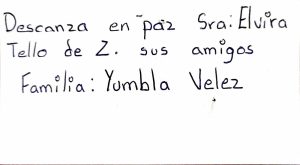 Descanza en paz Sra: Elvira
Tello de Z. sus amigos
Familia: Yumbla Velez